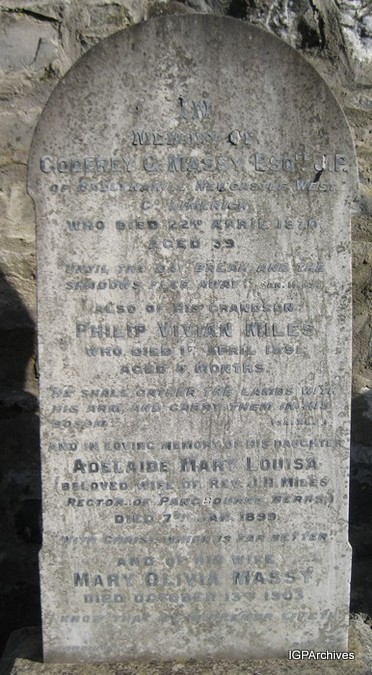 IN
MEMORY OF
GODFREY C. MASSY, ESQRE J.P.
OF NEWCASTLE WEST
CO LIMERICK
WHO DIED 22ND APRIL
AGED 39
"UNTIL THE DAY BREAK AND THE
SHADOWS FLEE AWAY"
ALSO OF HIS GRANDSON
PHILIP VIVIAN MILES
WHO DIED 1ST APRIL 1891,
AGED MONTHS.
"HE SHALL GATHER THE LAMBS WITH
HIS ARM, AND CARRY THEM IN HIS
BOSOM."
AND IN LOVING MEMORY OF HIS DAUGHTER
ADELAIDE MARY LOUISA
(BELOVED WIFE OF REV. J.H. MILES
RECTOR OF PANGBOURNE BERKS,)
DIED 7TH JAN. 1899.
"WITH CHRIST, WHICH IS FAR BETTER"
AND OF HIS WIFE
MARY OLIVIA MASSY,
DIED OCTOBER 13TH 1903
I KNOW THAT MY REDEEMER LIVETH
IGPArchives